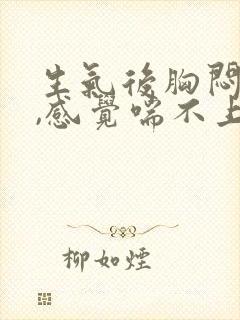 生氣後胸悶
,感覺喘不上
柳如煙